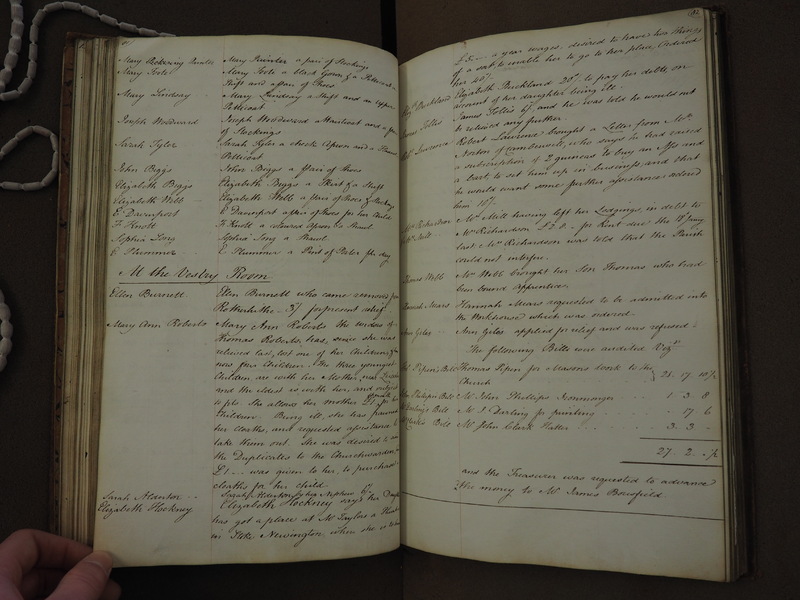 Mary Pickering Painter Mary Painter a pair of Stockings
Mary Foote Mary Foote a black Gown & a Petticoat a
Shift and a pair of Shoes
Mary Lindsey Mary Lindsey a Shift and an upper
Petticoat
Joseph Woodward Joseph Woodward a Waistcoat and a pair
of Stockings
Sarah Tyler Sarah Tyler a check Apron and a
Petticoat
John Biggs John Biggs a Pair of Shoes
Elizabeth Biggs Elizabeth Biggs a Skirt & a Shift
Elizabeth Webb Elizabeth Webb a pair of Shoes & Stockings
E Davenport E Davenport a pair of Shoes for her Child
F Knott F Knott a coloured Apron & a Shawl
Sophia Long Sophia Long a Shawl
E Plummer E Plummer a Pint of Porter per day
At the Vestry Room
Ellen Burnett Ellen Burnett who came removed from
Rotherhithe - 3/ for present relief
Mary Ann Roberts Mary Ann Roberts the widow of
Thomas Roberts, has, since she was
relieved last, lost one of her Children, &
now five Children. The three youngest
Children are with her Mother
and the eldest is with her, and
to pls. She allows her mother
Children. Being ill, she has pawned
her cloaths, and requested assistance to
take them out. She was desired to
the Duplicates to the Churchwarden,
£1 -- was given to her, to purchase
cloaths for her child.
Sarah Alanton Sarah Alanton by her Nephew 6/
Elizabeth Hockney Elizabeth Hockney says her Daughter
has got a place at Mr Taylors a
in Stoke Newington, when she is to have
182
£5 -- a year wages, desired to have two things
of a sort to enable her to go to her place. Ordered
her 40/
Elizth Buckland Elizabeth Buckland 20/ to pay her debts, on
account of her daughter being ill.
James Follis James Follis 6/ and he was told he would not
be relieved any further.
Robt Lawrence Robert Lawrence brought a Letter from Mr
Norton of Camberwell, who says he had raised
a subscription of 2 guineas to buy an Ass and
a Cart, to set him up in business, and that
he would want some further assistance ordered
him 10/
Richardson Mr Mill having left her Lodgings, in debt to
Mrs Richardson £2.8.- for Rent due the 18th Jany
last. Mrs Richardson was told that the Parish
could not interfere.
Thomas Webb Mrs Webb brought her Son Thomas who had
been bound Apprentice.
Hannah Mears Hannah Mears requested to be admitted into
the Workhouse which was ordered.
Ann Giles Ann Giles applied for relief and was refused.
The following Bills were audited Vizt
Pipen's Bill Thomas Pipen for Masons work to the
Church 21. 17. 10½
Phillips Bill Mr John Phillips Ironmonger 1 3 8
Darling's Bill Mr J Darling for printing 17 6
Clark's Bill Mr John Clark Hatter 3 3 -
27. 2. -½
and the Treasurer was requested to advance
the money to Mr James Bousfield.